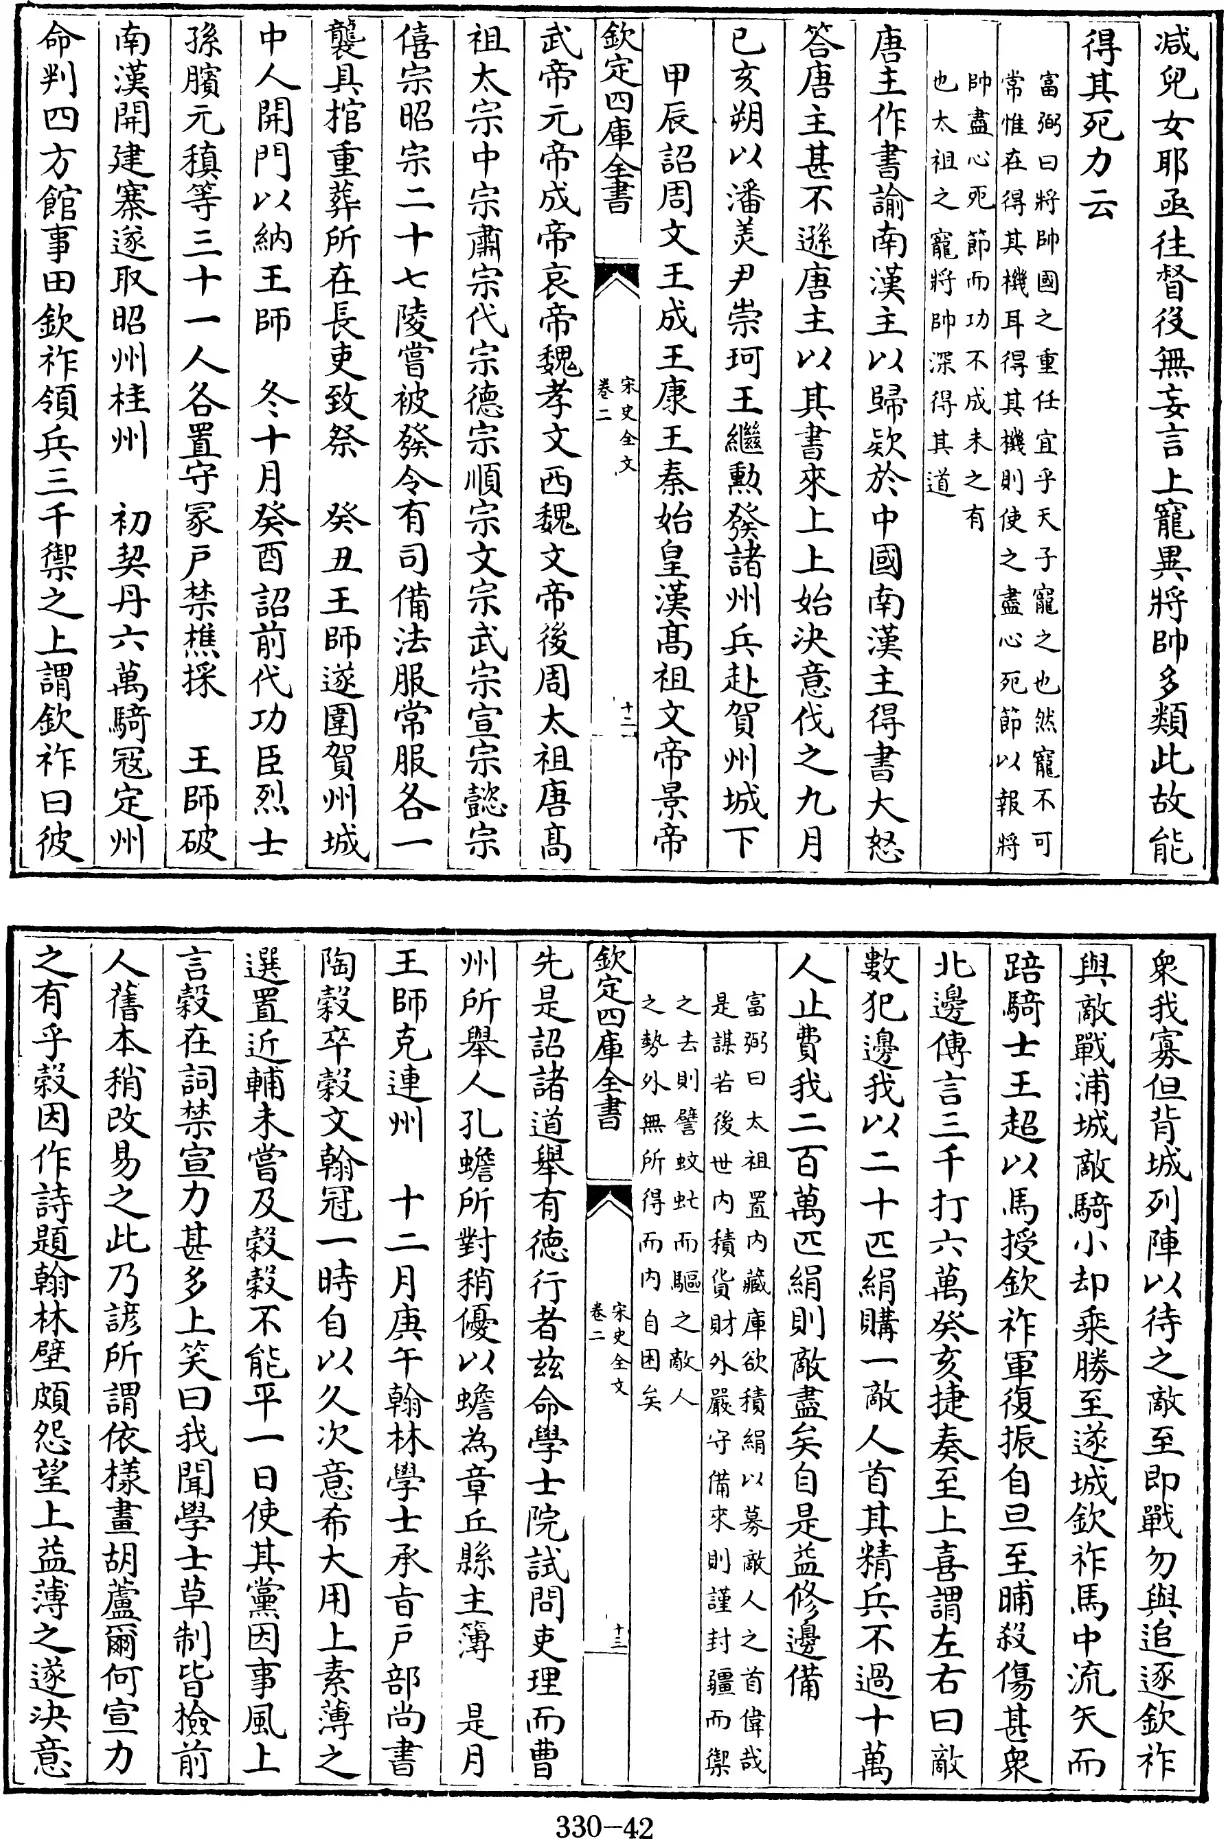 減兒女耶亟往督役無妄言上寵異將帥多類此故能
得其死力云
富弼曰將帥國之重任宜乎天子寵之也然寵不可
常惟在得其機耳得其機則使之盡心死節以報將
帥盡心死節而功不成未之有
也太祖之寵將帥深得其道
唐主作書諭南漢主以歸欵於中國南漢主得書大怒
答唐主甚不遜唐主以其書來上上始決意伐之九月
已亥朔以潘羙尹崇珂王繼勲發諸州兵赴賀州城下
甲辰詔周文王成王康王秦始皇漢髙祖文帝景帝
欽定四庫全書
宋史全文
卷二
十二
武帝元帝成帝哀帝魏孝文西魏文帝後周太祖唐髙
祖太宗中宗肅宗代宗德宗順宗文宗武宗宣宗懿宗
僖宗昭宗二十七陵嘗被發令有司備法服常服各一
襲具棺重葬所在長吏致祭　癸丑王師遂圍賀州城
中人開門以納王師　冬十月癸酉詔前代功臣烈士
孫臏元稹等三十一人各置守冢戶禁樵採　王師破
南漢開建寨遂取昭州桂州　初契丹六萬騎寇定州
命判四方館事田欽祚領兵三千禦之上謂欽祚曰彼
衆我寡但背城列陣以待之敵至即戰勿與追逐欽祚
與敵戰浦城敵騎小却乘勝至遂城欽祚馬中流矢而
踣騎士王超以馬授欽祚軍復振自旦至晡殺傷甚衆
北邊傳言三千打六萬癸亥捷奏至上喜謂左右曰敵
數犯邊我以二十匹絹購一敵人首其精兵不過十萬
人止費我二百萬匹絹則敵盡矣自是益修邊備
富弼曰太祖置内藏庫欲積絹以募敵人之首偉哉
是謀若後世内積貨財外嚴守備來則謹封疆而禦
之去則譬蚊虻而驅之敵人
之勢外無所得而内自困矣
欽定四庫全書
宋史全文
卷二
十三
先是詔諸道舉有徳行者茲命學士院試問吏理而曹
州所舉人孔蟾所對稍優以蟾為章丘縣主簿　是月
王師克連州　十二月庚午翰林學士承旨戶部尚書
陶穀卒穀文翰冠一時自以久次意希大用上素薄之
選置近輔未嘗及穀穀不能平一日使其黨因事風上
言穀在詞禁宣力甚多上笑曰我聞學士草制皆撿前
人舊本稍改易之此乃諺所謂依様畫胡蘆爾何宣力
之有乎穀因作詩題翰林壁頗怨望上益薄之遂決意
330-42